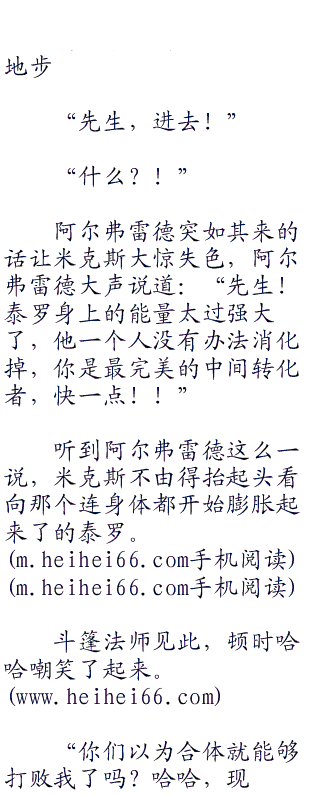 地步
“先生，进去！”
“什么？！”
阿尔弗雷德突如其来的
话让米克斯大惊失色，阿尔
弗雷德大声说道：“先生！
泰罗身上的能量太过强大
了，他一个人没有办法消化
掉，你是最完美的中间转化
者，快一点！！”
听到阿尔弗雷德这么一
说，米克斯不由得抬起头看
向那个连身体都开始膨胀起
来了的泰罗。
(m.heihei66.com手机阅读)
(m.heihei66.com手机阅读)
斗篷法师见此，顿时哈
哈嘲笑了起来。
(www.heihei66.com)
“你们以为合体就能够
打败我了吗？哈哈，现